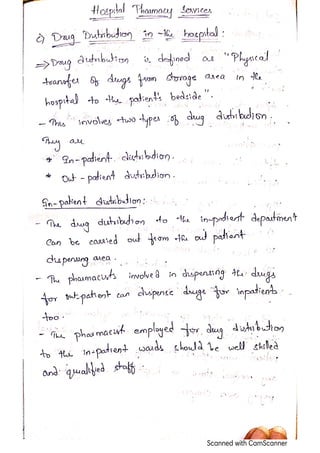 Hospital Pharmacy Services
c) Drug Dutribution in the hospital :
=> Drug dutribution is defined as "Physical
transfer of drugs from storage area in the
hospital to the patient's bedside".
- This involves two types of drug dutribution.
They are
* In-patient distribution.
* Out-patient distribution.
In-patient distribution:
- The drug distribution to the in-patient department
can be carried out from the out patient
dispensing area.
- The pharmacists involved in dispensing the drugs
for out-patient can dispense drugs for inpatients
too.
- The pharmacist employed for drug distribution
to the in-patient wards should be well skilled
and qualified staff.
Scanned with CamScanner